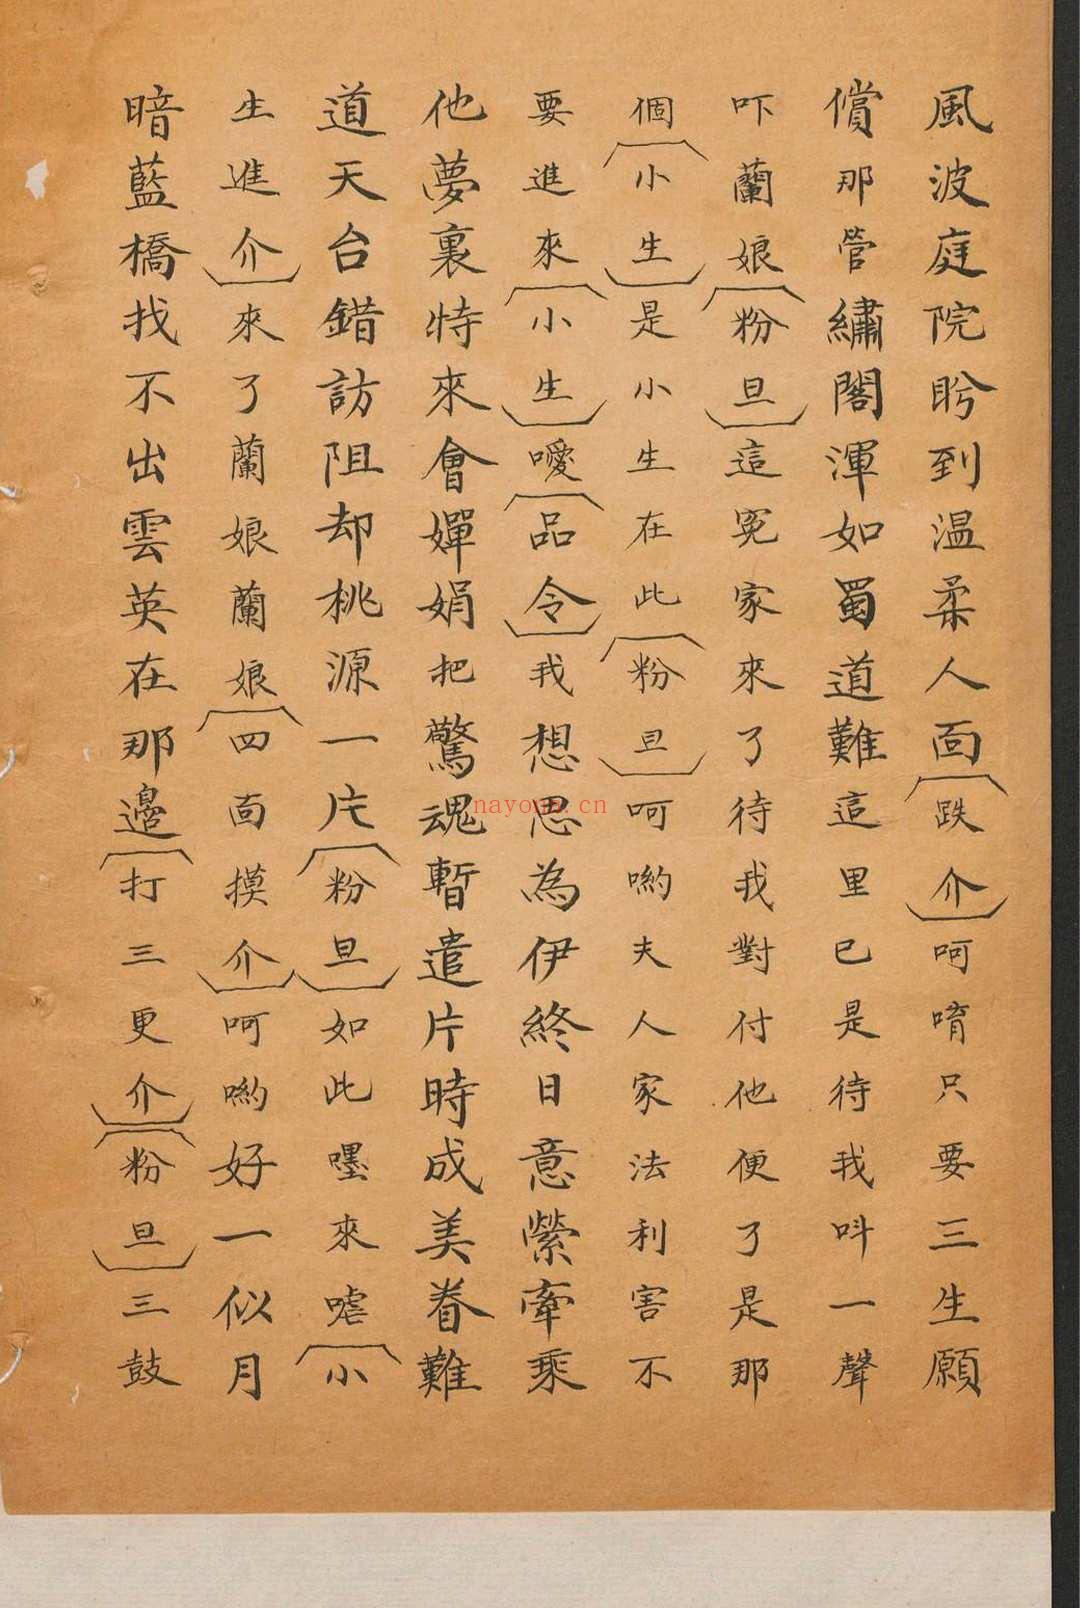 風波庭院盻到温柔人面（跌介）呵唷只要三生願
償那管繡閣渾如蜀道難這里已是待我呌一聲
吓蘭娘（粉旦）這冤家來了待我對付他便了是那
個（小生）是小生在此（粉旦）呵喲夫人家法利害不
要進來（小生）噯（品令）我想思為伊終日意縈牽乘
他夢裏特來會嬋娟把驚魂暫遣片時成美眷難
道天台錯訪阻却桃源一片（粉旦）如此嚜來嘘（小
生進介）來了蘭娘蘭娘（四面摸介）呵喲好一似月
暗藍橋找不出雲英在那邊（打三更介）（粉旦）三鼓
nayona.cn